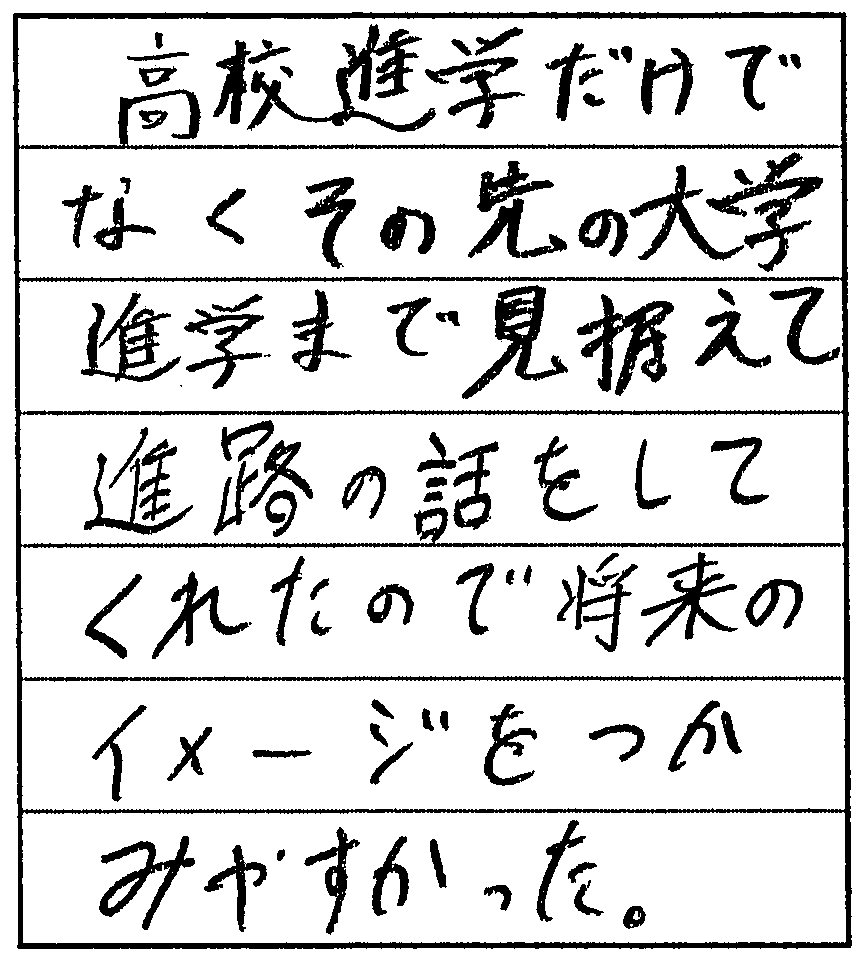 高校進学だけで
なくその先の大学
進学まで見据えて
進路の話をして
くれたので将来の
イメージをつか
みやすかった。